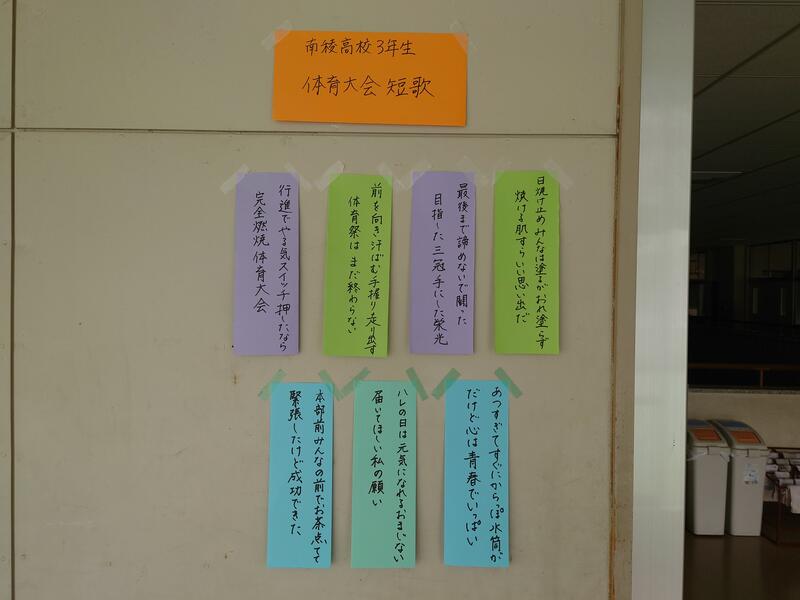 南稜高校3年生
体育大会 短歌
日焼け止め みんなは塗るがおれ塗らず
焼ける肌すらいい思い出だ
最後まで諦めないで闘った
目指した三冠手にした栄光
前を向き汗ばむ手握り走り出す
体育祭は まだ終わらない
行進でやる気スイッチ押したなら
完全燃焼 体育大会
あつすぎてすぐにからっぽ水筒が
だけど心は青春でいっぱい
ハレの日は元気になれるおまじない
届いてほしい私の願い
本部前みんなの前でお茶点てて
緊張したけど成功できた